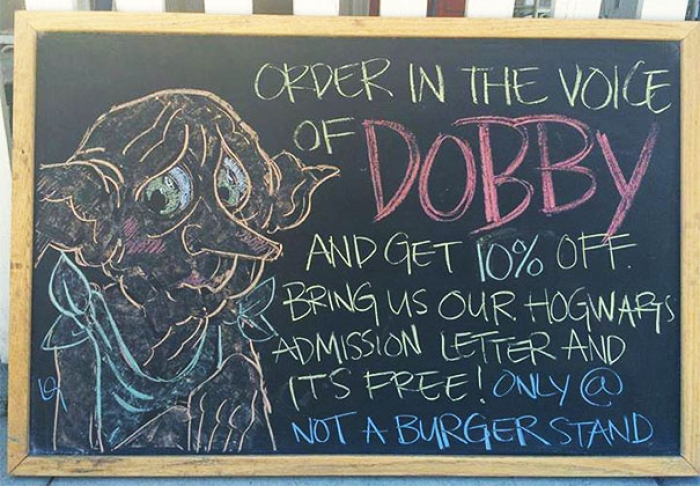 ORDER IN THE VOICE
OF DOBBY
AND GET 10% OFF.
BRING US OUR HOGWARTS
ADMISSION LETTER AND
IT'S FREE! ONLY @
NOT A BURGER STAND